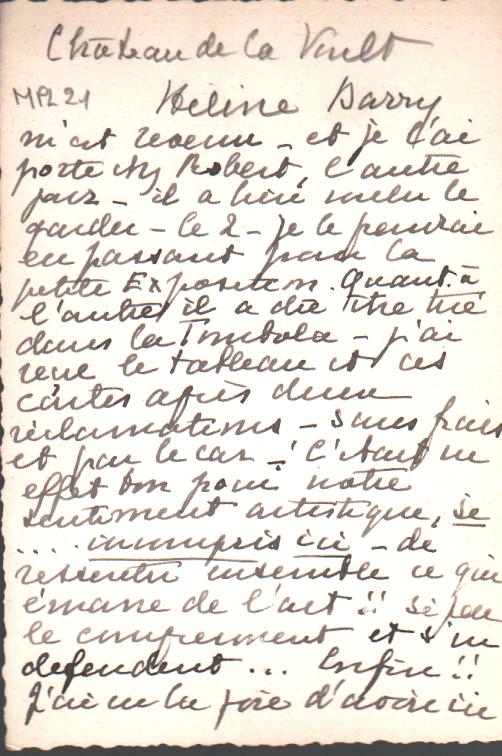 Château de la Vault
MPL 21 Hélène Barry
m'est revenu - et je l'ai
porté chez Robert, l'autre
jour - il a bien voulu le
garder - le 2 - je le prendrai
en passant pour la
petite Exposition. Quant à
l'autre il a dû être tiré
dans la Tombola - j'ai
reçu le tableau et ces
cartes après deux
réclamations - sans frais
et par le car - ! C'était un
effet bon pour notre
sentiment artistique, si
.... incompris ici - de
ressentir ensemble ce qui
émane de l'art !! si peu
le comprennent et s'en
défendent ... Enfin !!
J'ai eu la joie d'avoir ici